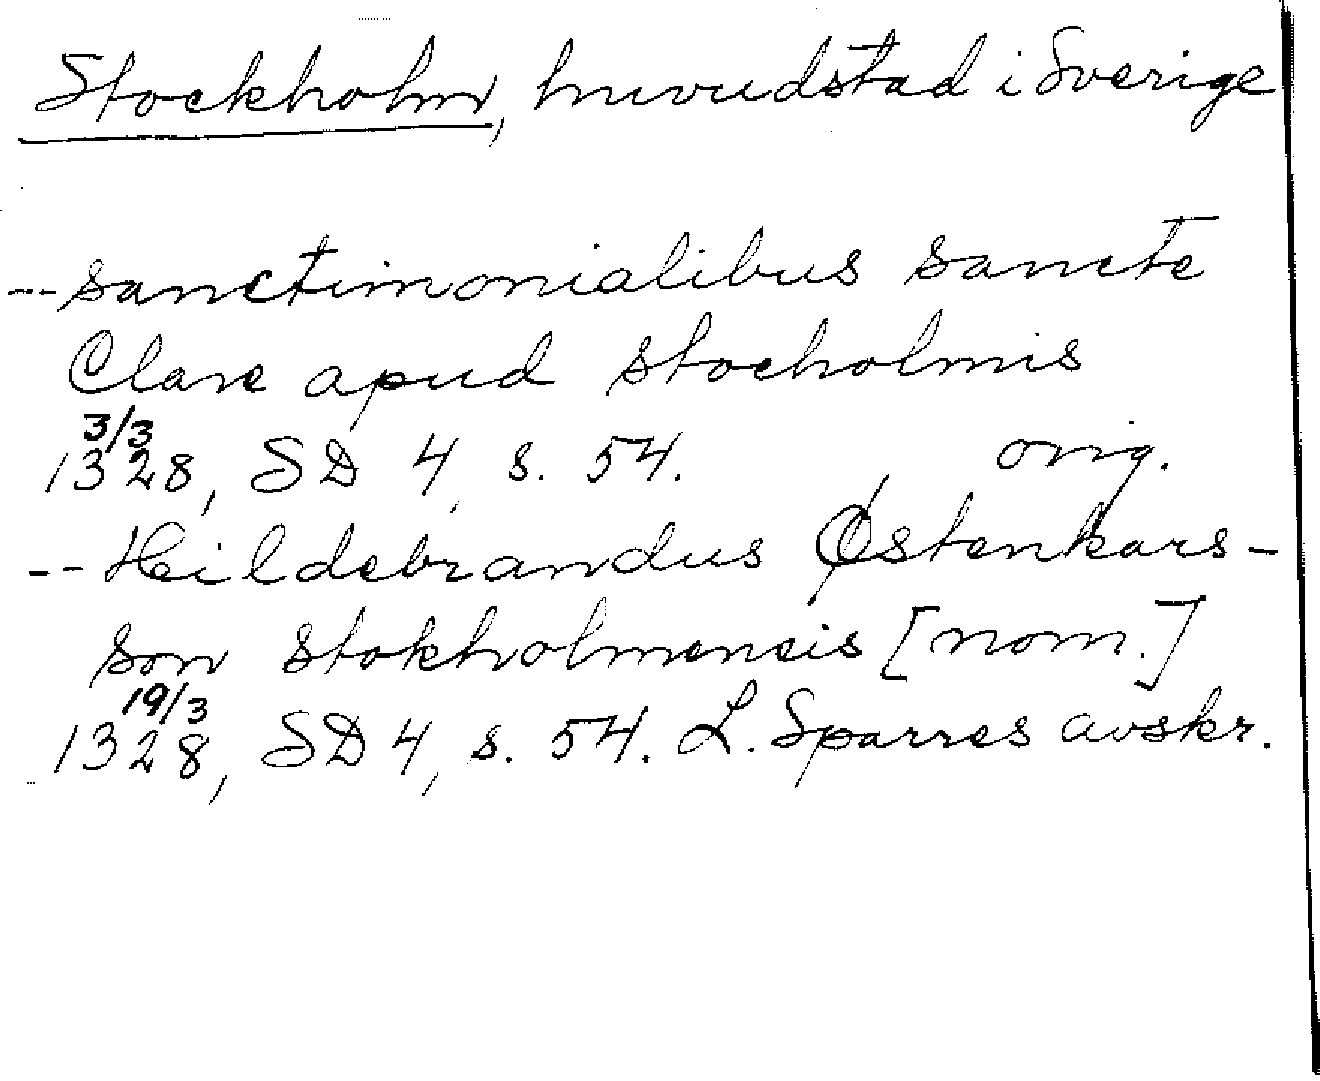 Stockholm, huvudstad i Sverige
-- sanctimonialibus sancte
Clare apud stocholmis
3/3
1328, SD 4 s. 54. orig.
-- Hildebrandus Østenkars-
son stokholmensis [nom.]
19/3
1328, SD 4, s. 54. L. Sparres avskr.